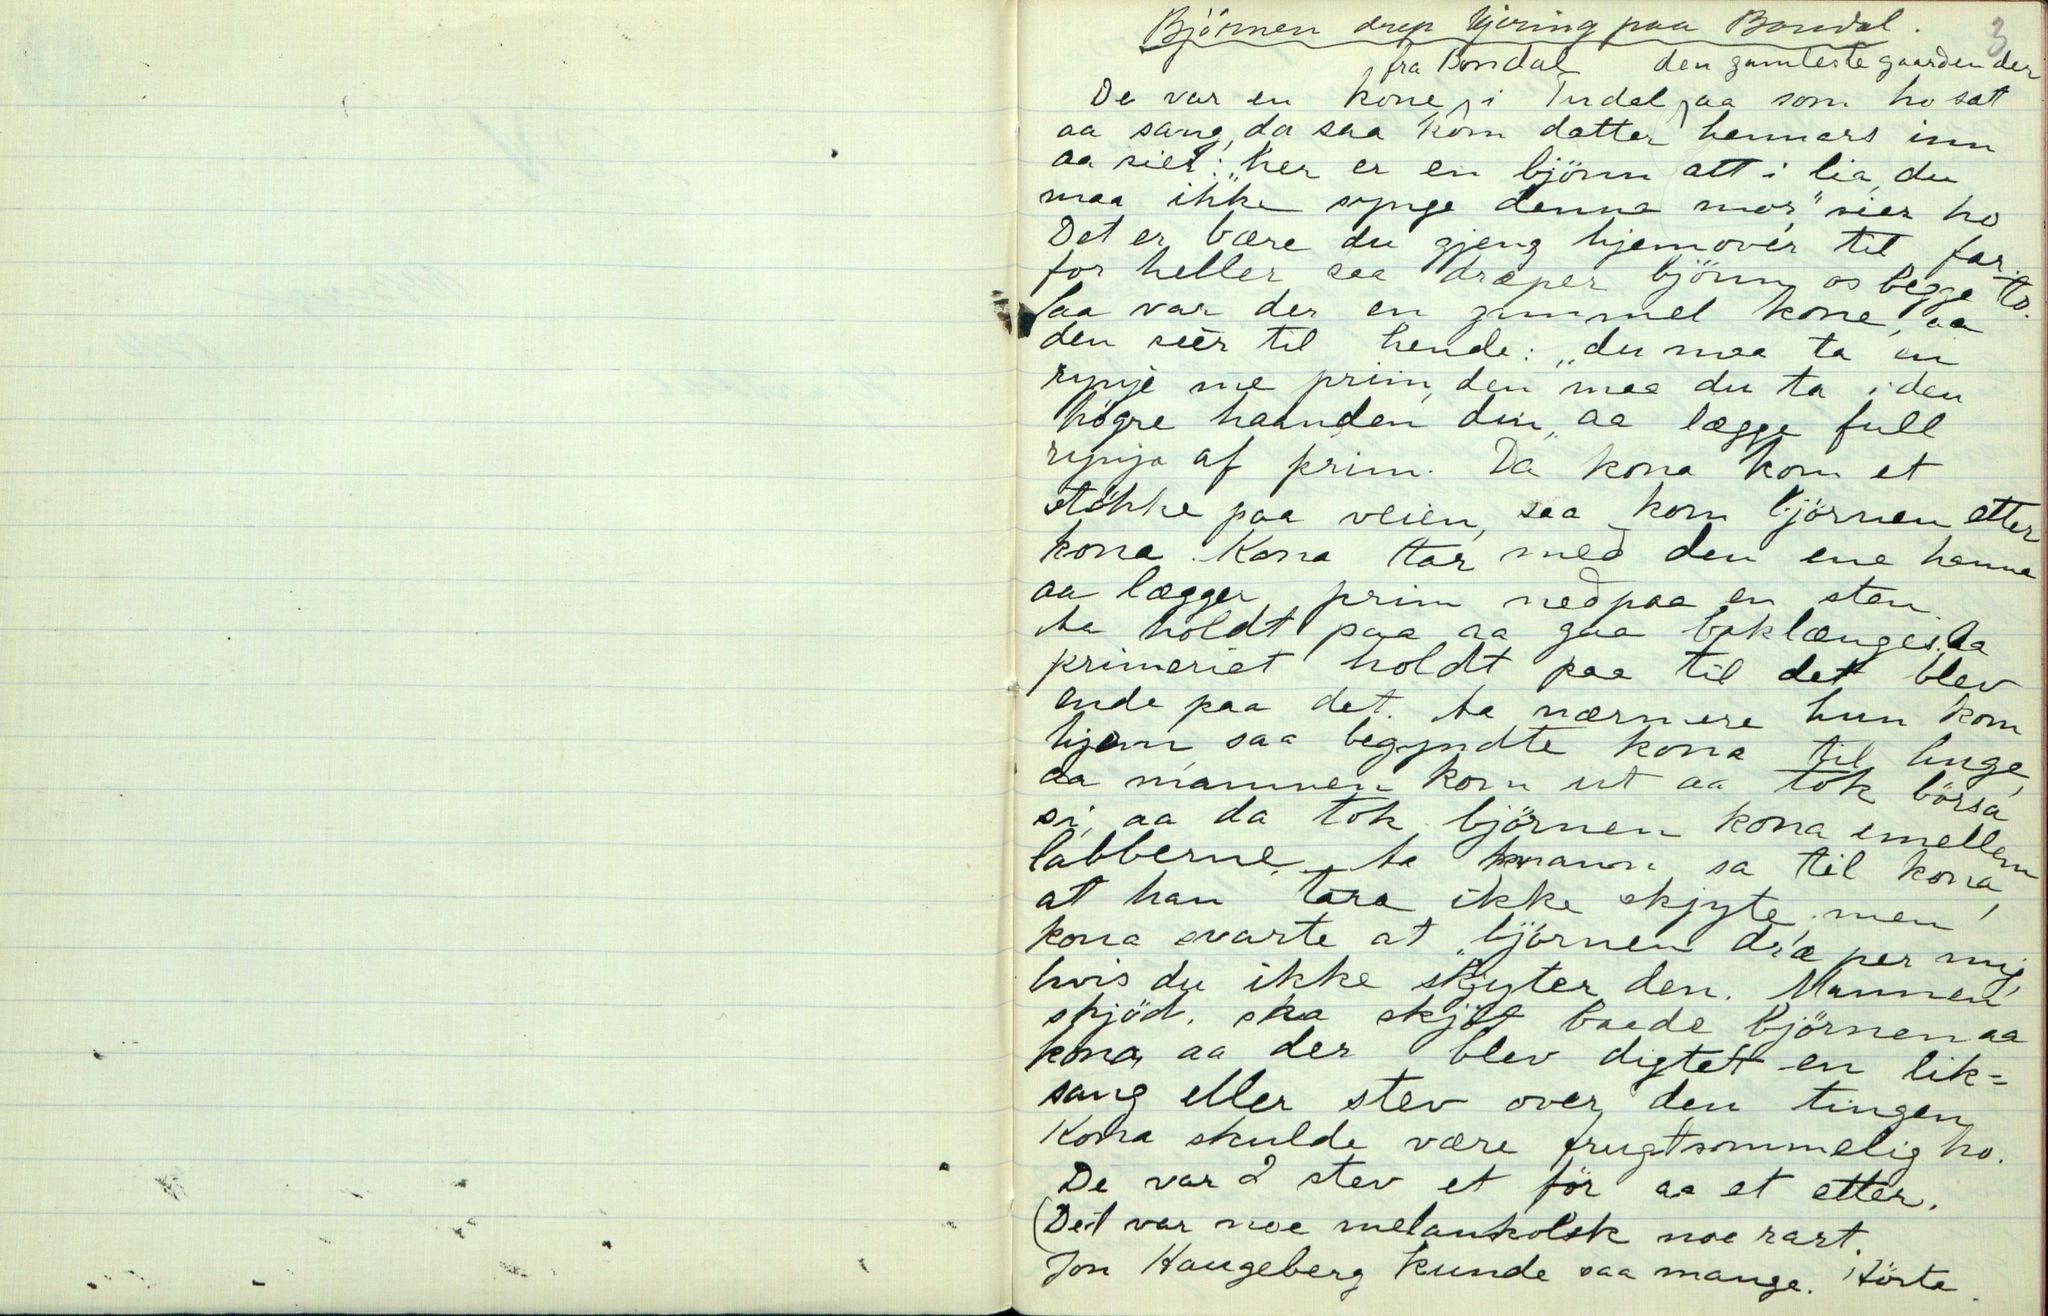 Björnen drep kjæring paa Bondal.
3
fra Bondal den gamleste gaarden der
De var en kone i Tudal aa som ho sat
aa sang, da saa kom datter hennars inn
aa sier: "her er en björnn att i lia, du
maa ikke synge denna mor," sier ho
Det er bære du gjeng hjemover til far.
for heller saa dræper björnn os begge to.
Saa var der en gammel kone, aa
den sier til hende: "du maa ta ein
rynje me prim, den maa du ta i den
högre haanden din," aa lægge full
rynja af prim. Da kona kom et
stökke paa veien, saa kom björnen etter
kona. Kona tar med den ene hanna
aa lægger prim ned paa en sten
Aa holdt paa aa gaa baklænges. Aa
primeriet holdt paa til det blev
ende paa det. Aa nærmere hun kom
hjem saa begyndte kona til huge,
aa mannen kom ut aa tok börsa
si, aa da tok björnen kona imellem
labberne. Aa mann sa til kona,
at han tora ikke skjyte, men
kona svarte at "björnen dræper mig,
hvis du ikke skjyter den. Mannen
skjöd. ska skjöt baade björnen aa
kona, aa der blev digtet en lik=
sang eller stev over den tingen
Kona skulde være frugtsommelig ho.
De var 2 stev et för aa et etter.
(Det var noe melankolsk noe rart
Jon Haugeberg kunde saa mange. Hörte